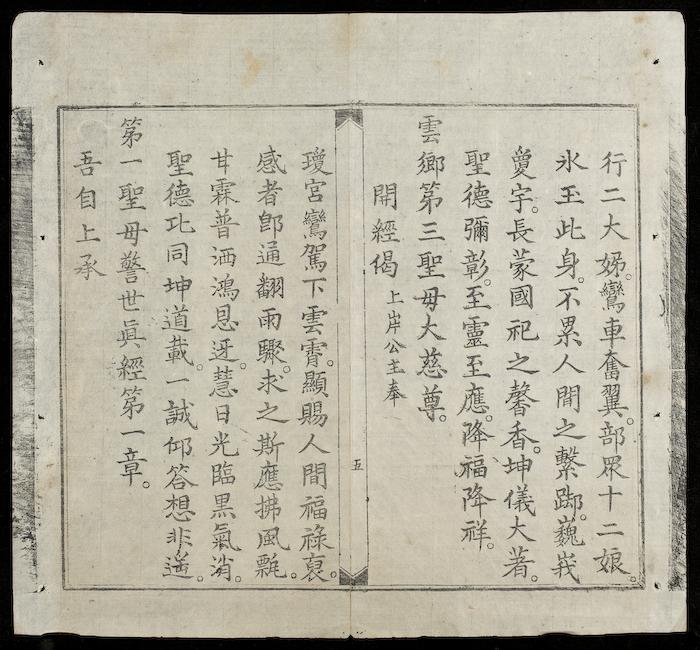 行二大娣。鸞車奮翼。部眾十二娘。
氷玉此身。不累人間之繫踟。巍峩
夐宇。長蒙國祀之馨香。坤儀大著。
聖德彌彰。至靈至應。降福降祥。
雲鄉第三聖母大慈尊。
開經偈 上岸公主奉
瓊宮鸞駕下雲霄。顯賜人間福祿裒。
感者即通翻雨驟。求之斯應拂風甎。
甘霖普洒鴻恩迓。慧日光臨黑氣消。
聖德㔻同坤道載。一誠仰答想非遥。
第一聖母警世真經第一章。
吾自上承
五